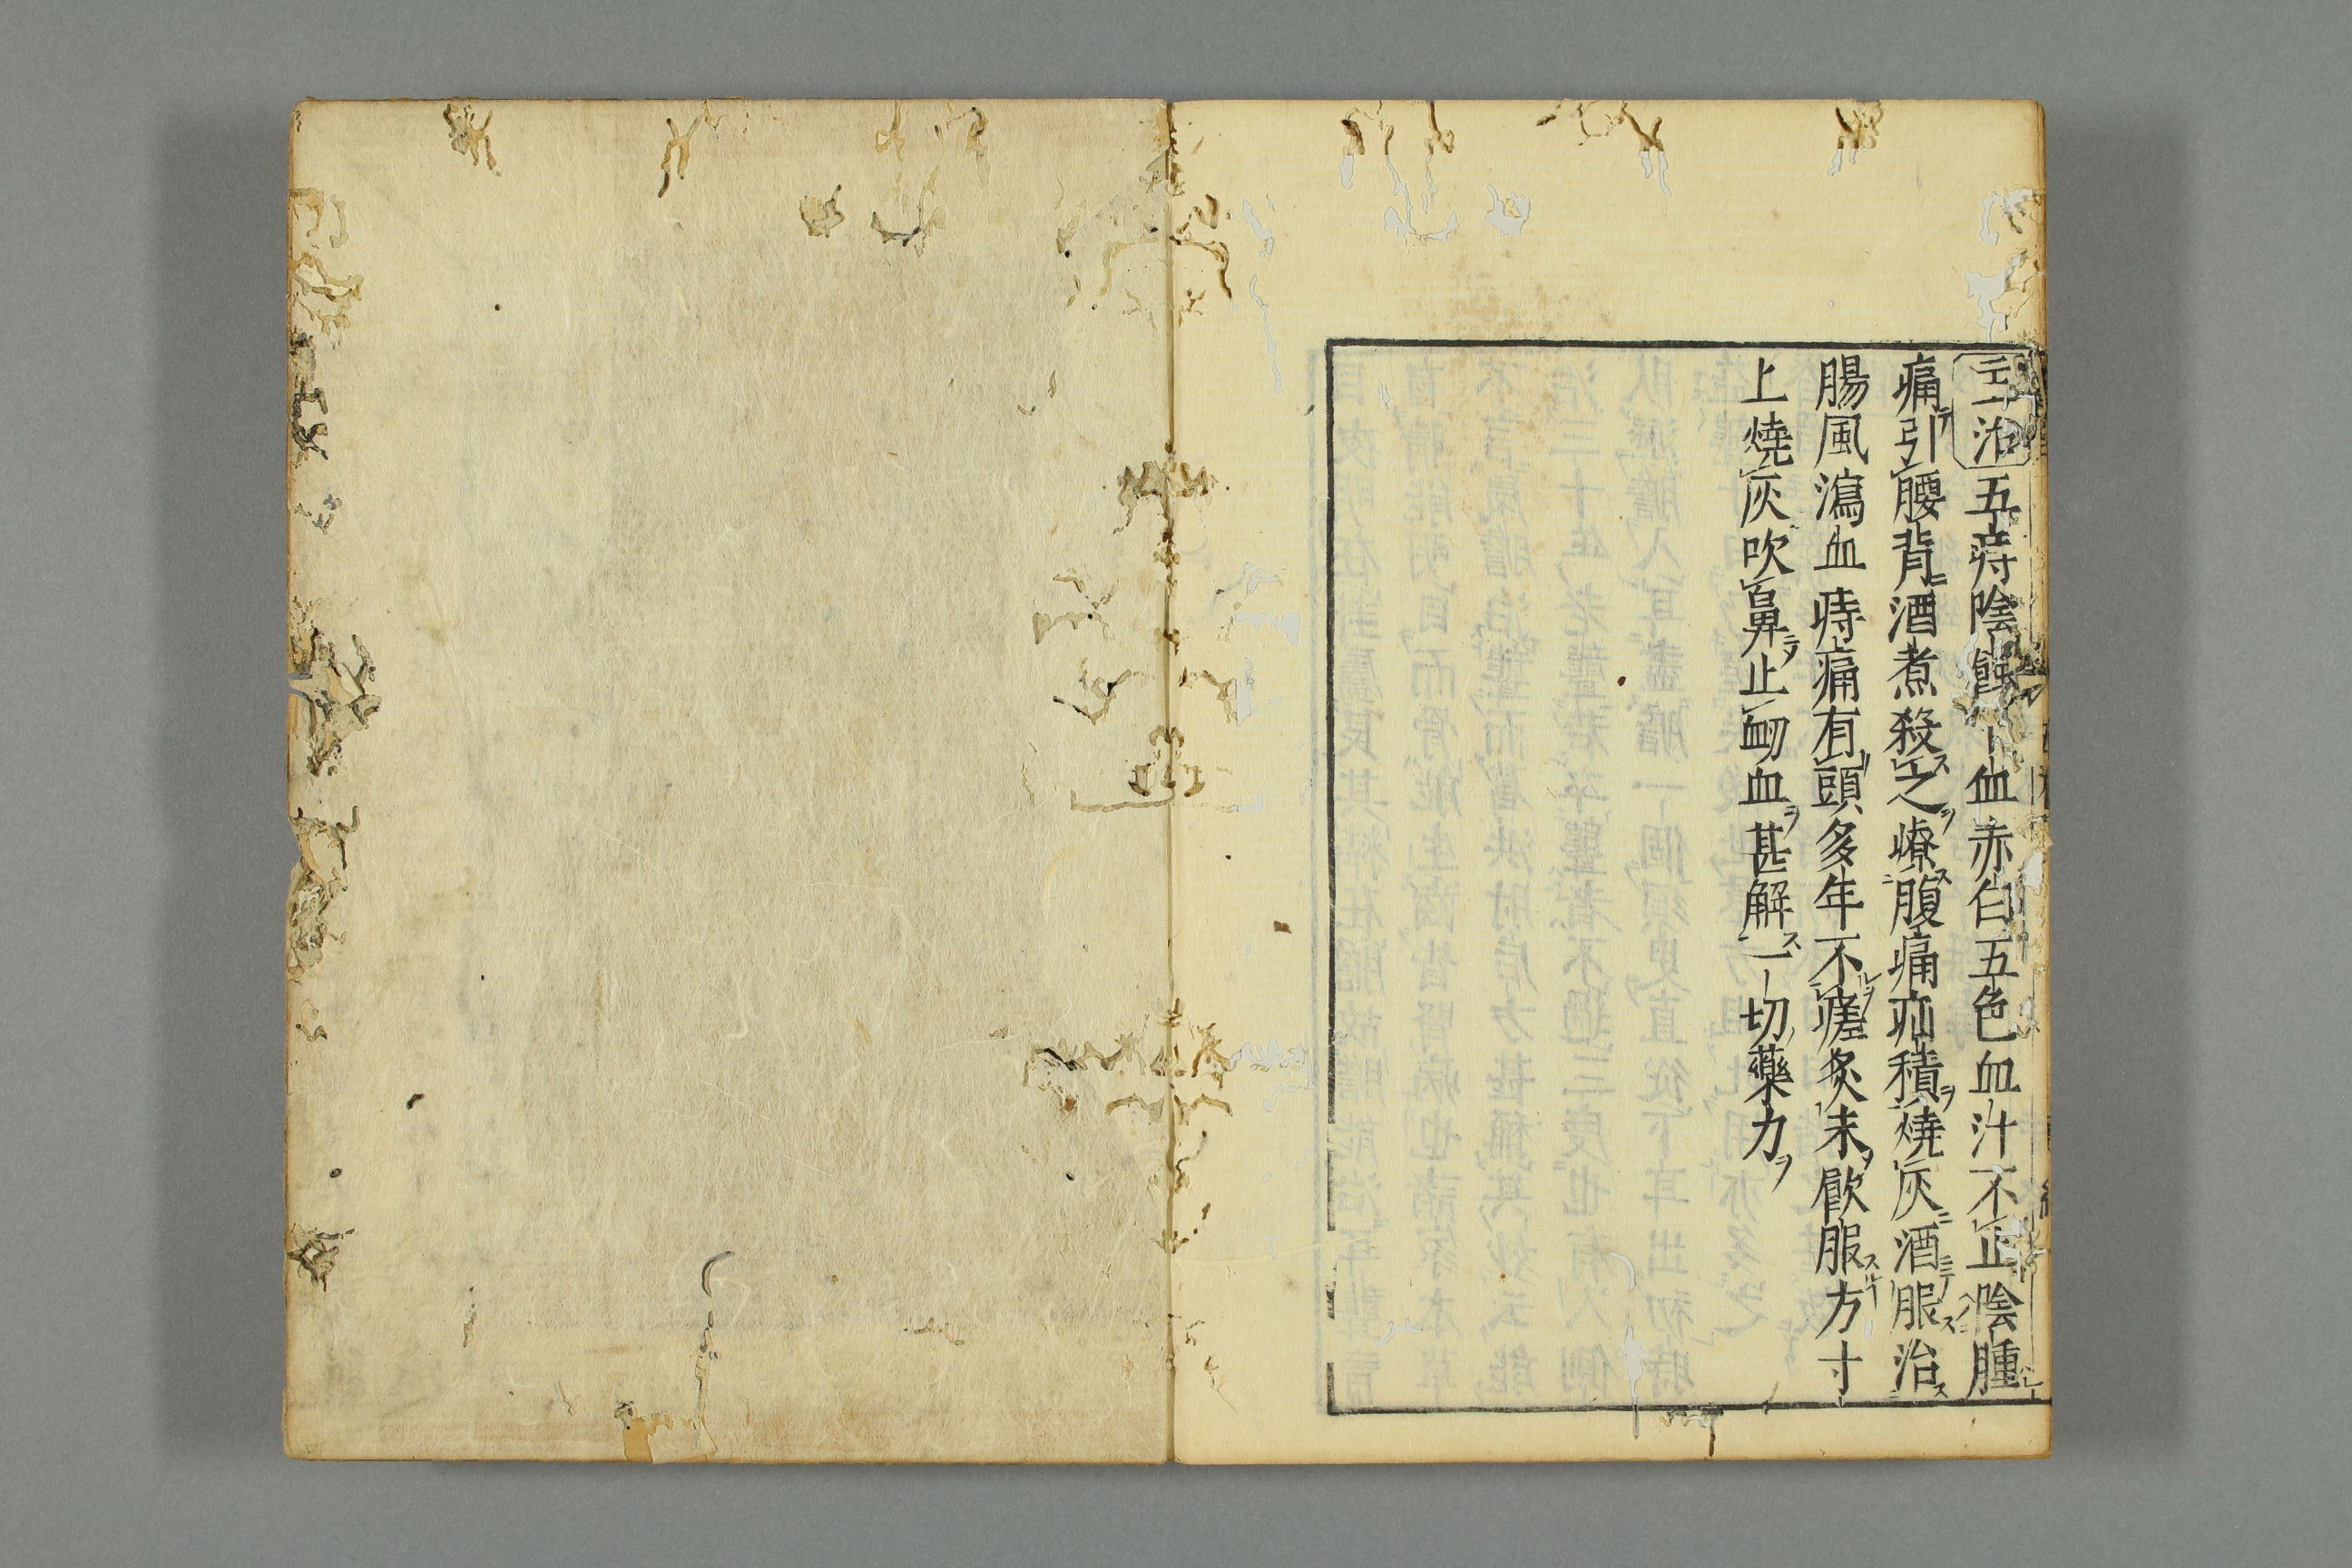 主治五痔陰蝕下血赤白五色血汁不止陰腫
痛引腰背酒煮殺之療腹痛疝積燒灰酒服治
腸風瀉血痔痛有頭多年不瘥炙末飮服方寸
上燒灰吹鼻止衂血甚解一切藥力